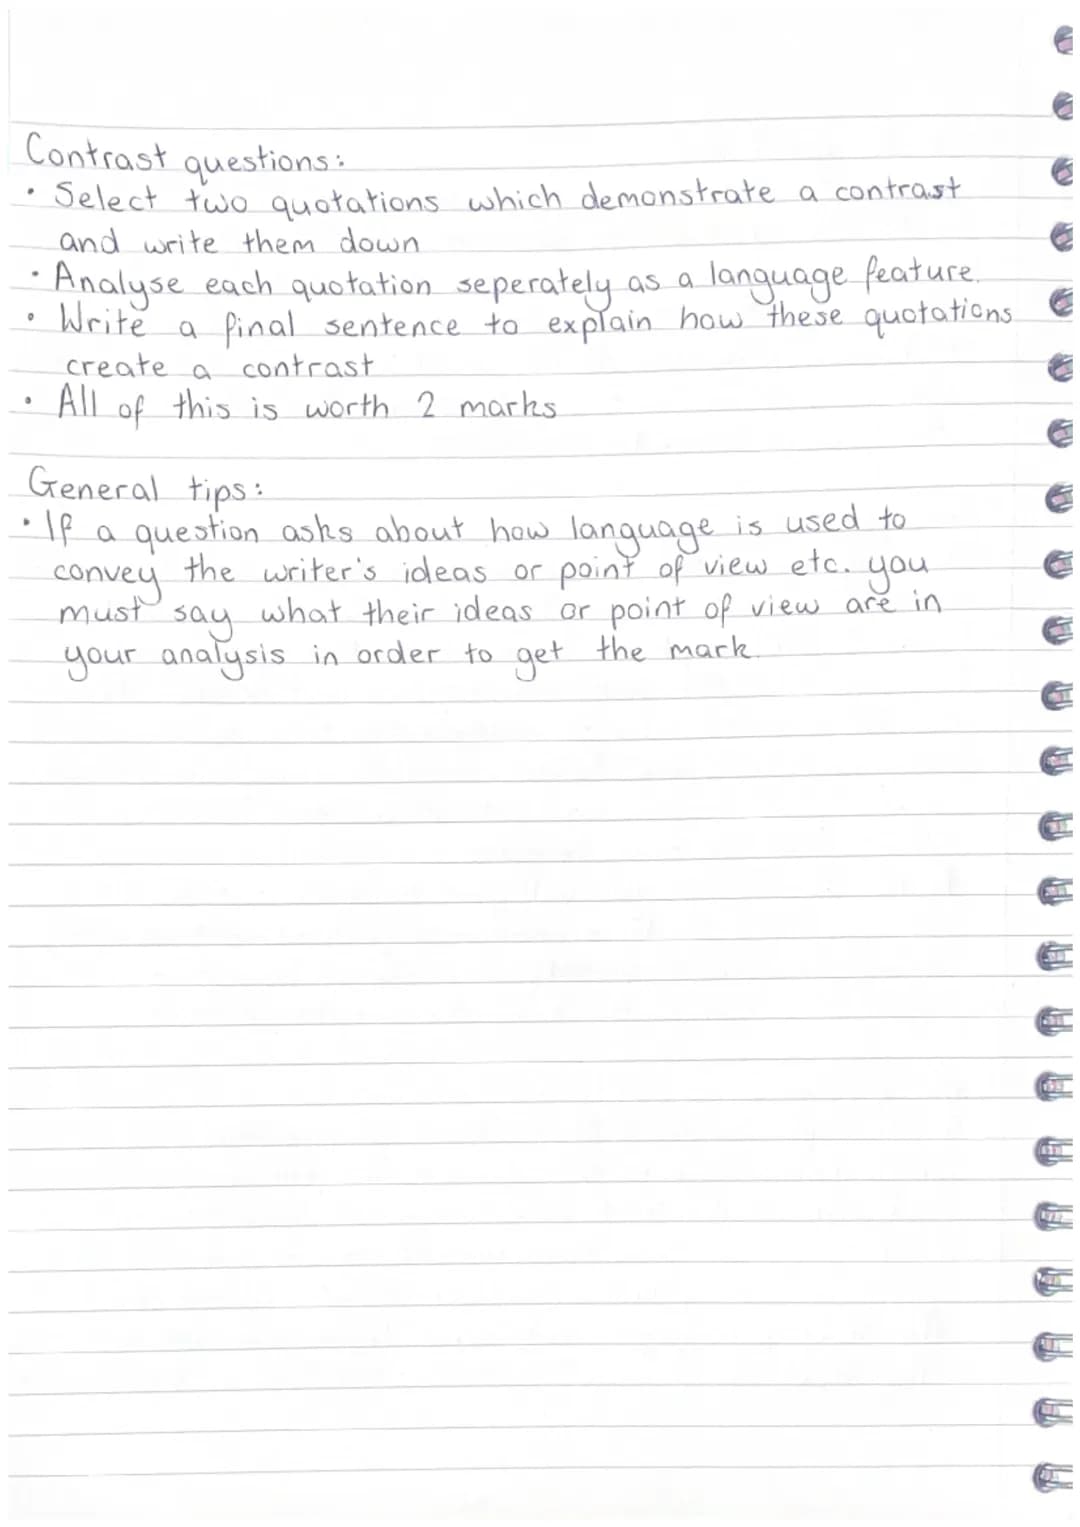 Contrast questions:
• Select two quotations which demonstrate a contrast
and write them down
• Analyse each quotation seperately as a language feature.
• Write a final sentence to explain how these quotations
create a contrast
• All of this is worth 2 marks
General tips:
• If a question asks about how language is used to
convey the writer's ideas or point of view etc. you
must say what their ideas or point of view are in
your analysis in order to get the mark.